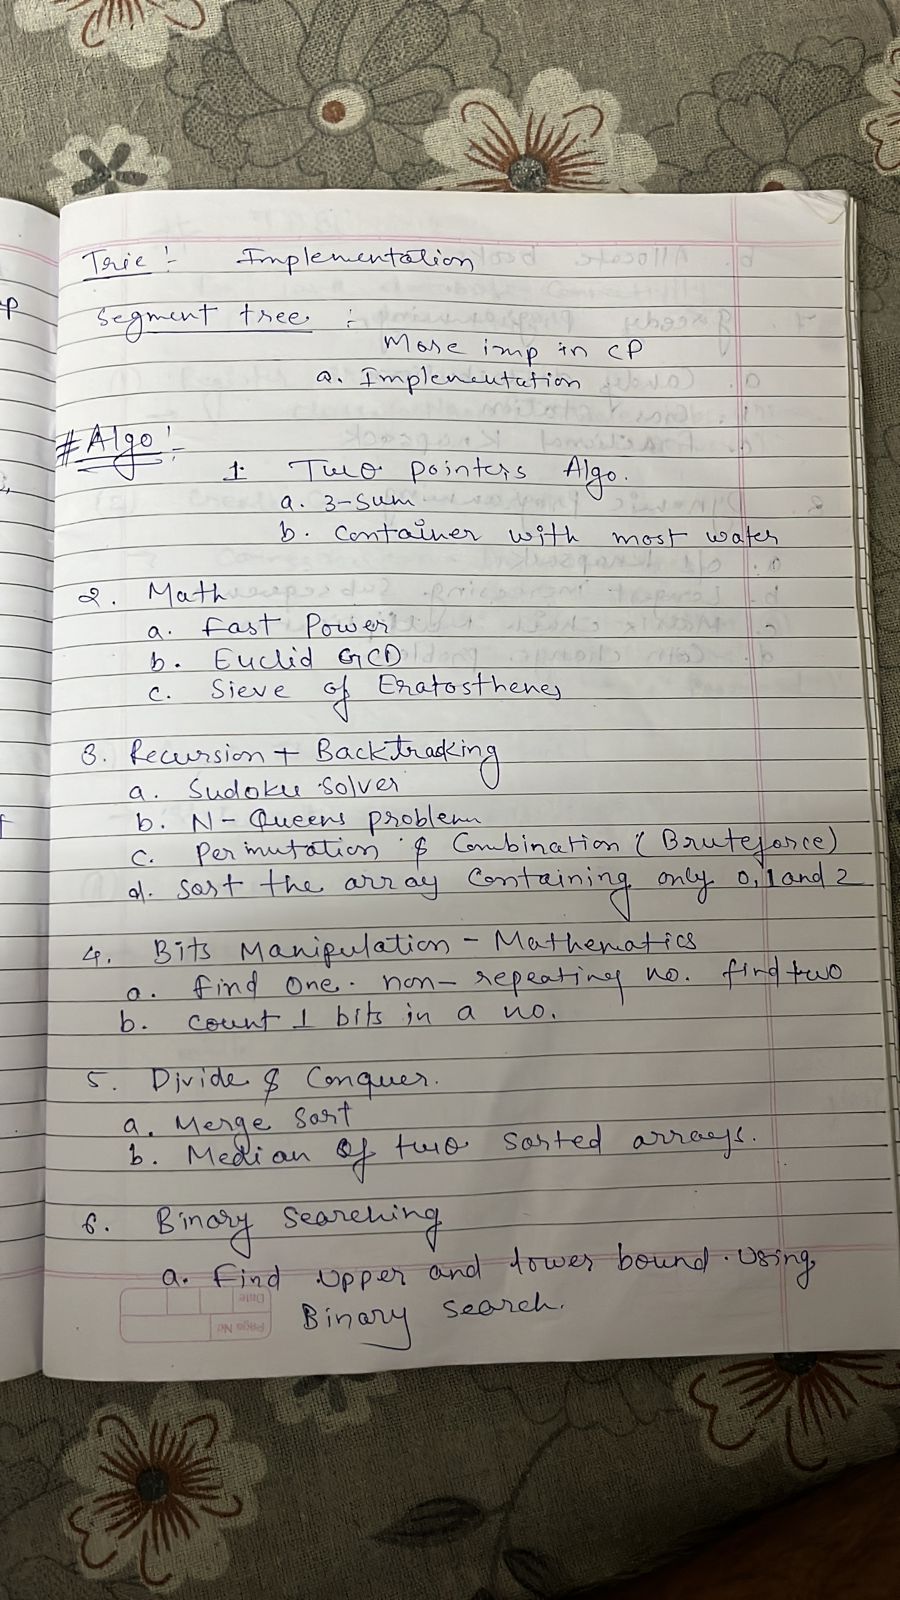 Trie :- Implementation
Segment tree :-
More imp in CP
a. Implementation
# Algo :-
1. Two pointers Algo.
a. 3-Sum
b. Container with most water
2. Math
a. Fast Power
b. Euclid GCD
c. Sieve of Eratosthenes
3. Recursion + Backtracking
a. Sudoku Solver
b. N-Queens problem
c. Permutation & Combination (Bruteforce)
d. Sort the array Containing only 0, 1 and 2
4. Bits Manipulation - Mathematics
a. find one non-repeating no. find two
b. count 1 bits in a no.
5. Divide & Conquer.
a. Merge Sort
b. Median of two sorted arrays.
6. Binary Searching
a. Find upper and lower bound. Using
Binary search.
Date
Page No